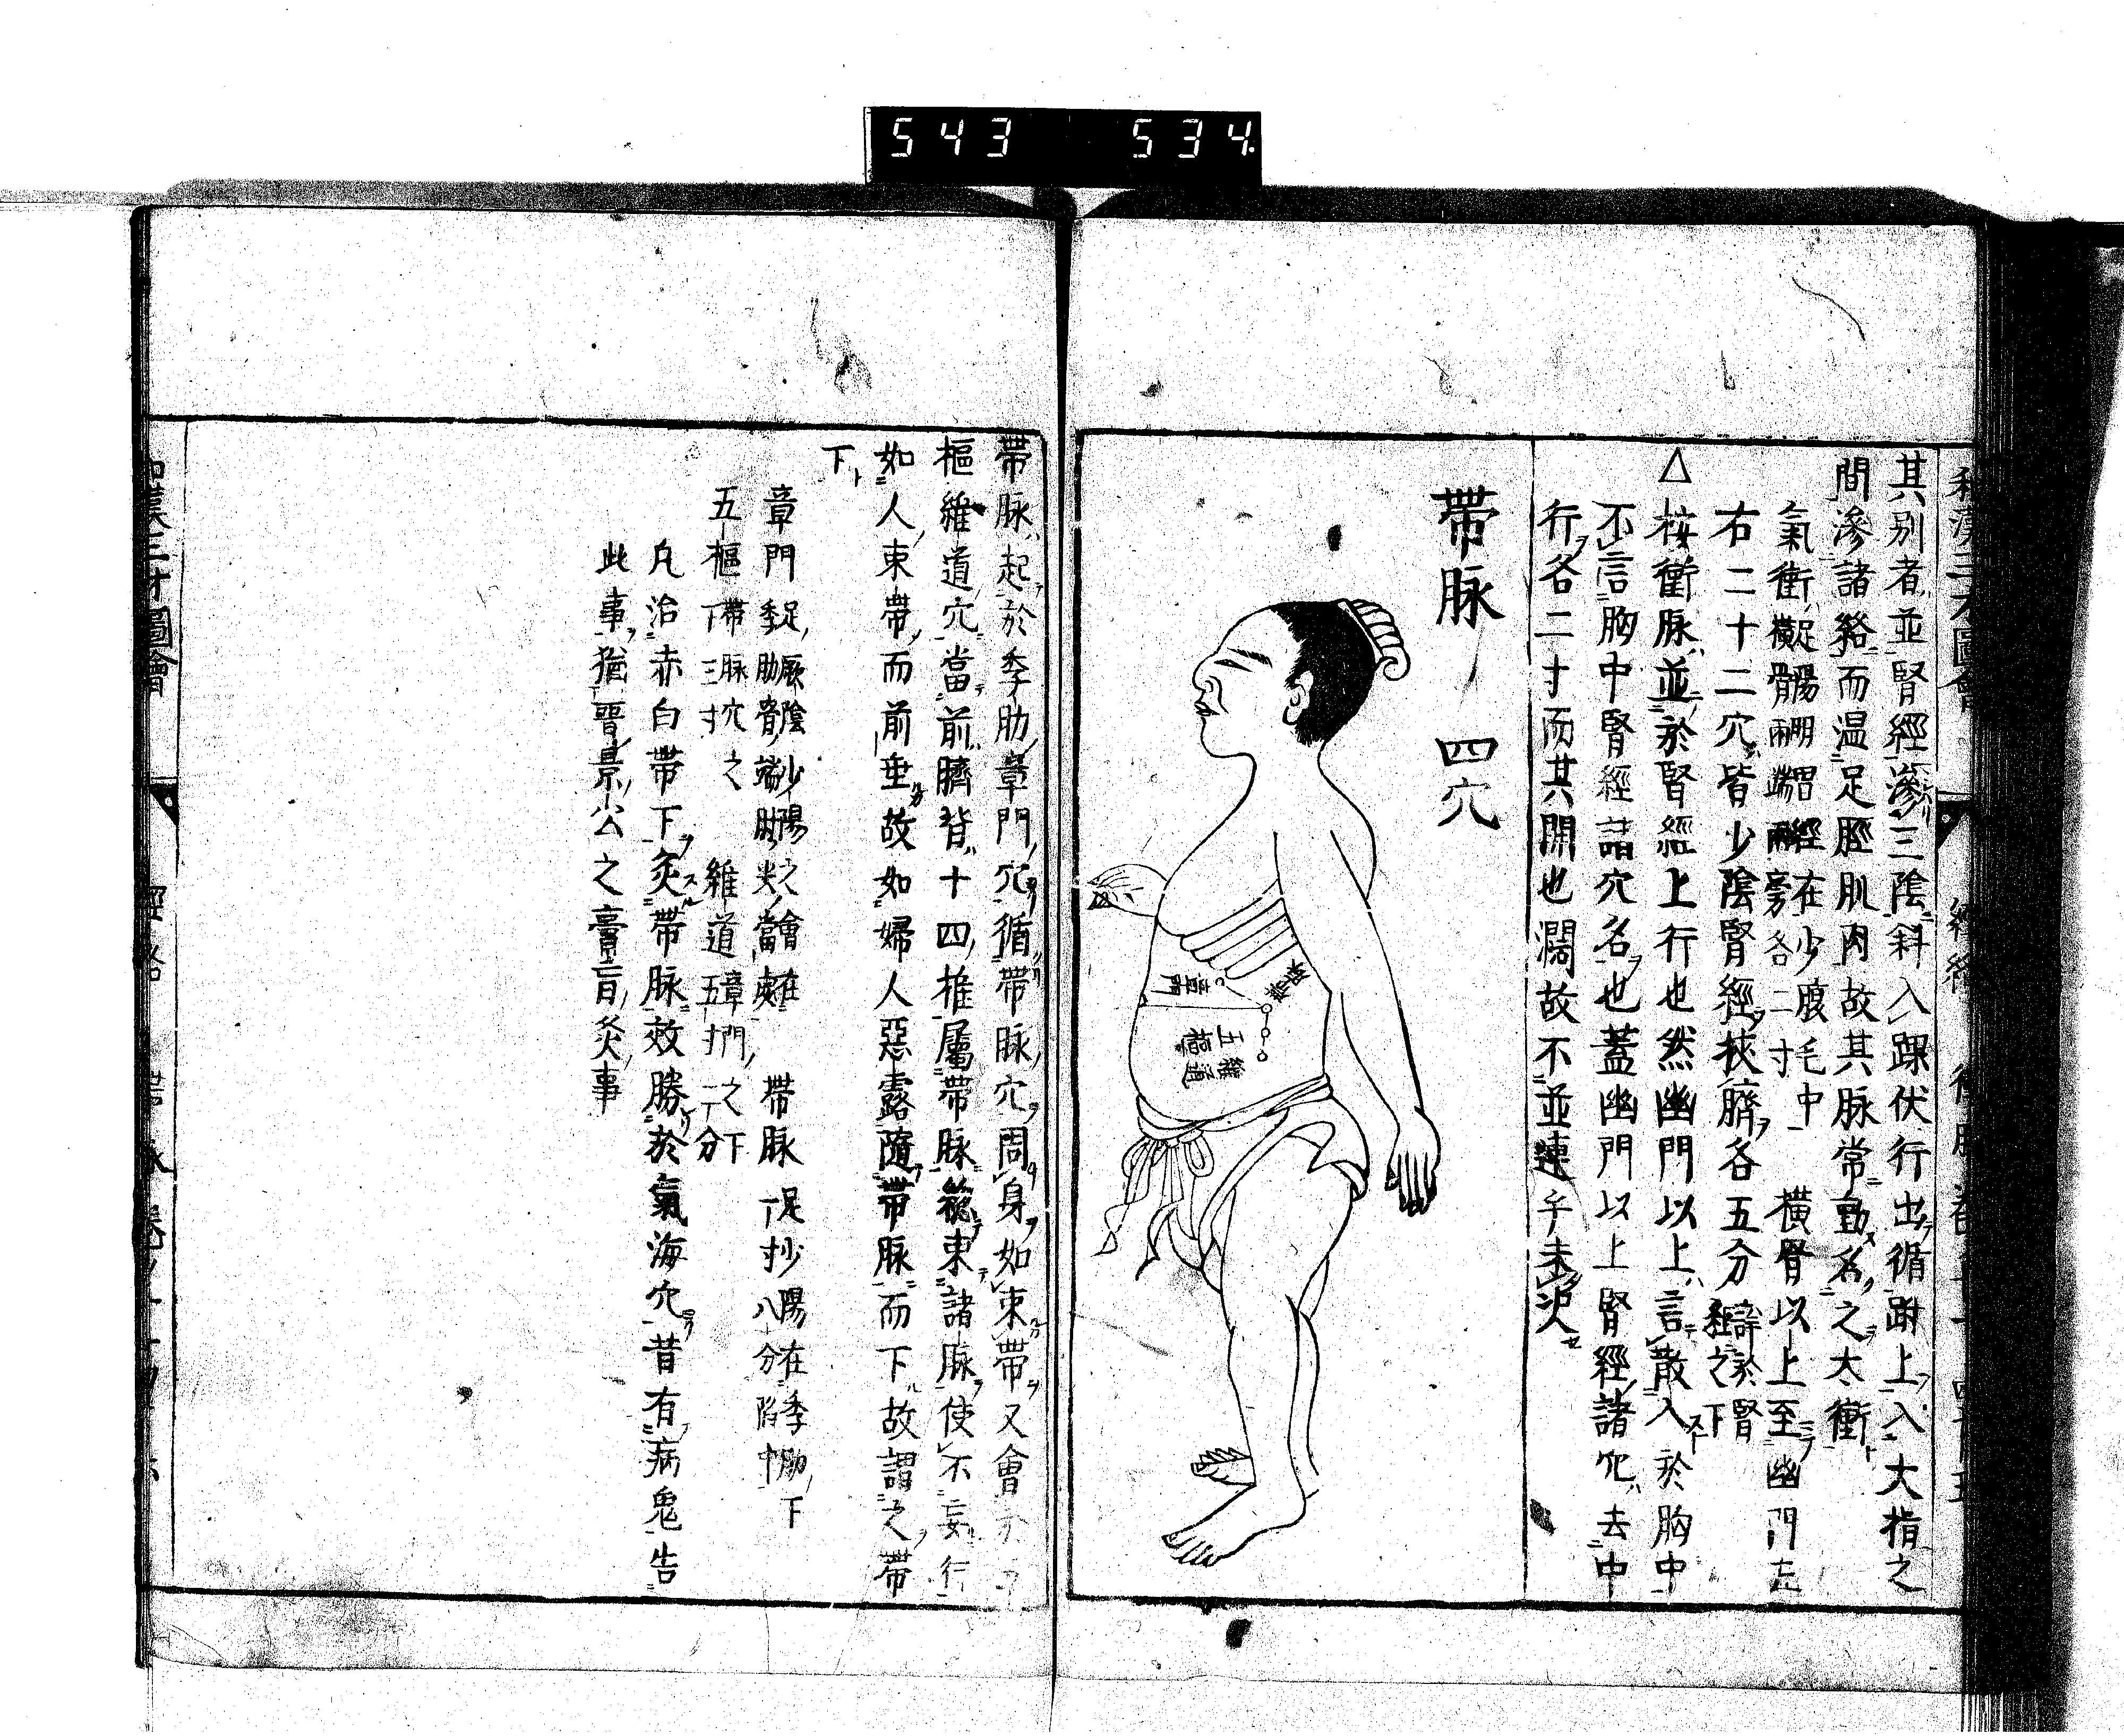 543 534.
和漢三才圖會
經絡
其別者並腎經滲三陰斜入踝伏行出循跗上入大指之
間滲諸絡而温足脛肌肉故其脉常動名之太衝
氣衝 足陽明胃經在少腹毛中
橫骨兩端兩旁各二寸
橫骨以上至幽門左
右二十二穴皆少陰腎經挾臍各五分 詳於腎
經之下
△按衝脉並於腎經上行也然幽門以上言散入於胸中
不言胸中腎經諸穴名也蓋幽門以上腎經諸穴去中
行各二寸而其開也濶故不並連乎未決
帶脉 四穴
章門
帶脉
五樞
維道
帶脉起於季肋章門穴循帶脉穴周身如束帶又會於五
樞維道穴當前臍背十四推屬帶脉總束諸脉使不妄行
如人束帶而前垂故如婦人惡露隨帶脉而下故謂之帶
下
章門 足厥陰少陽之會在
季肋旁端肘尖當處
帶脉 足少陽在季肋下
一寸八分陷中
五樞 帶脉穴之
下三寸
維道 章門之下
五寸二分
凡治赤白帶下灸帶脉效勝於氣海穴昔有病鬼告
此事猶晉景公之膏肓灸事
和漢三才圖會
經絡